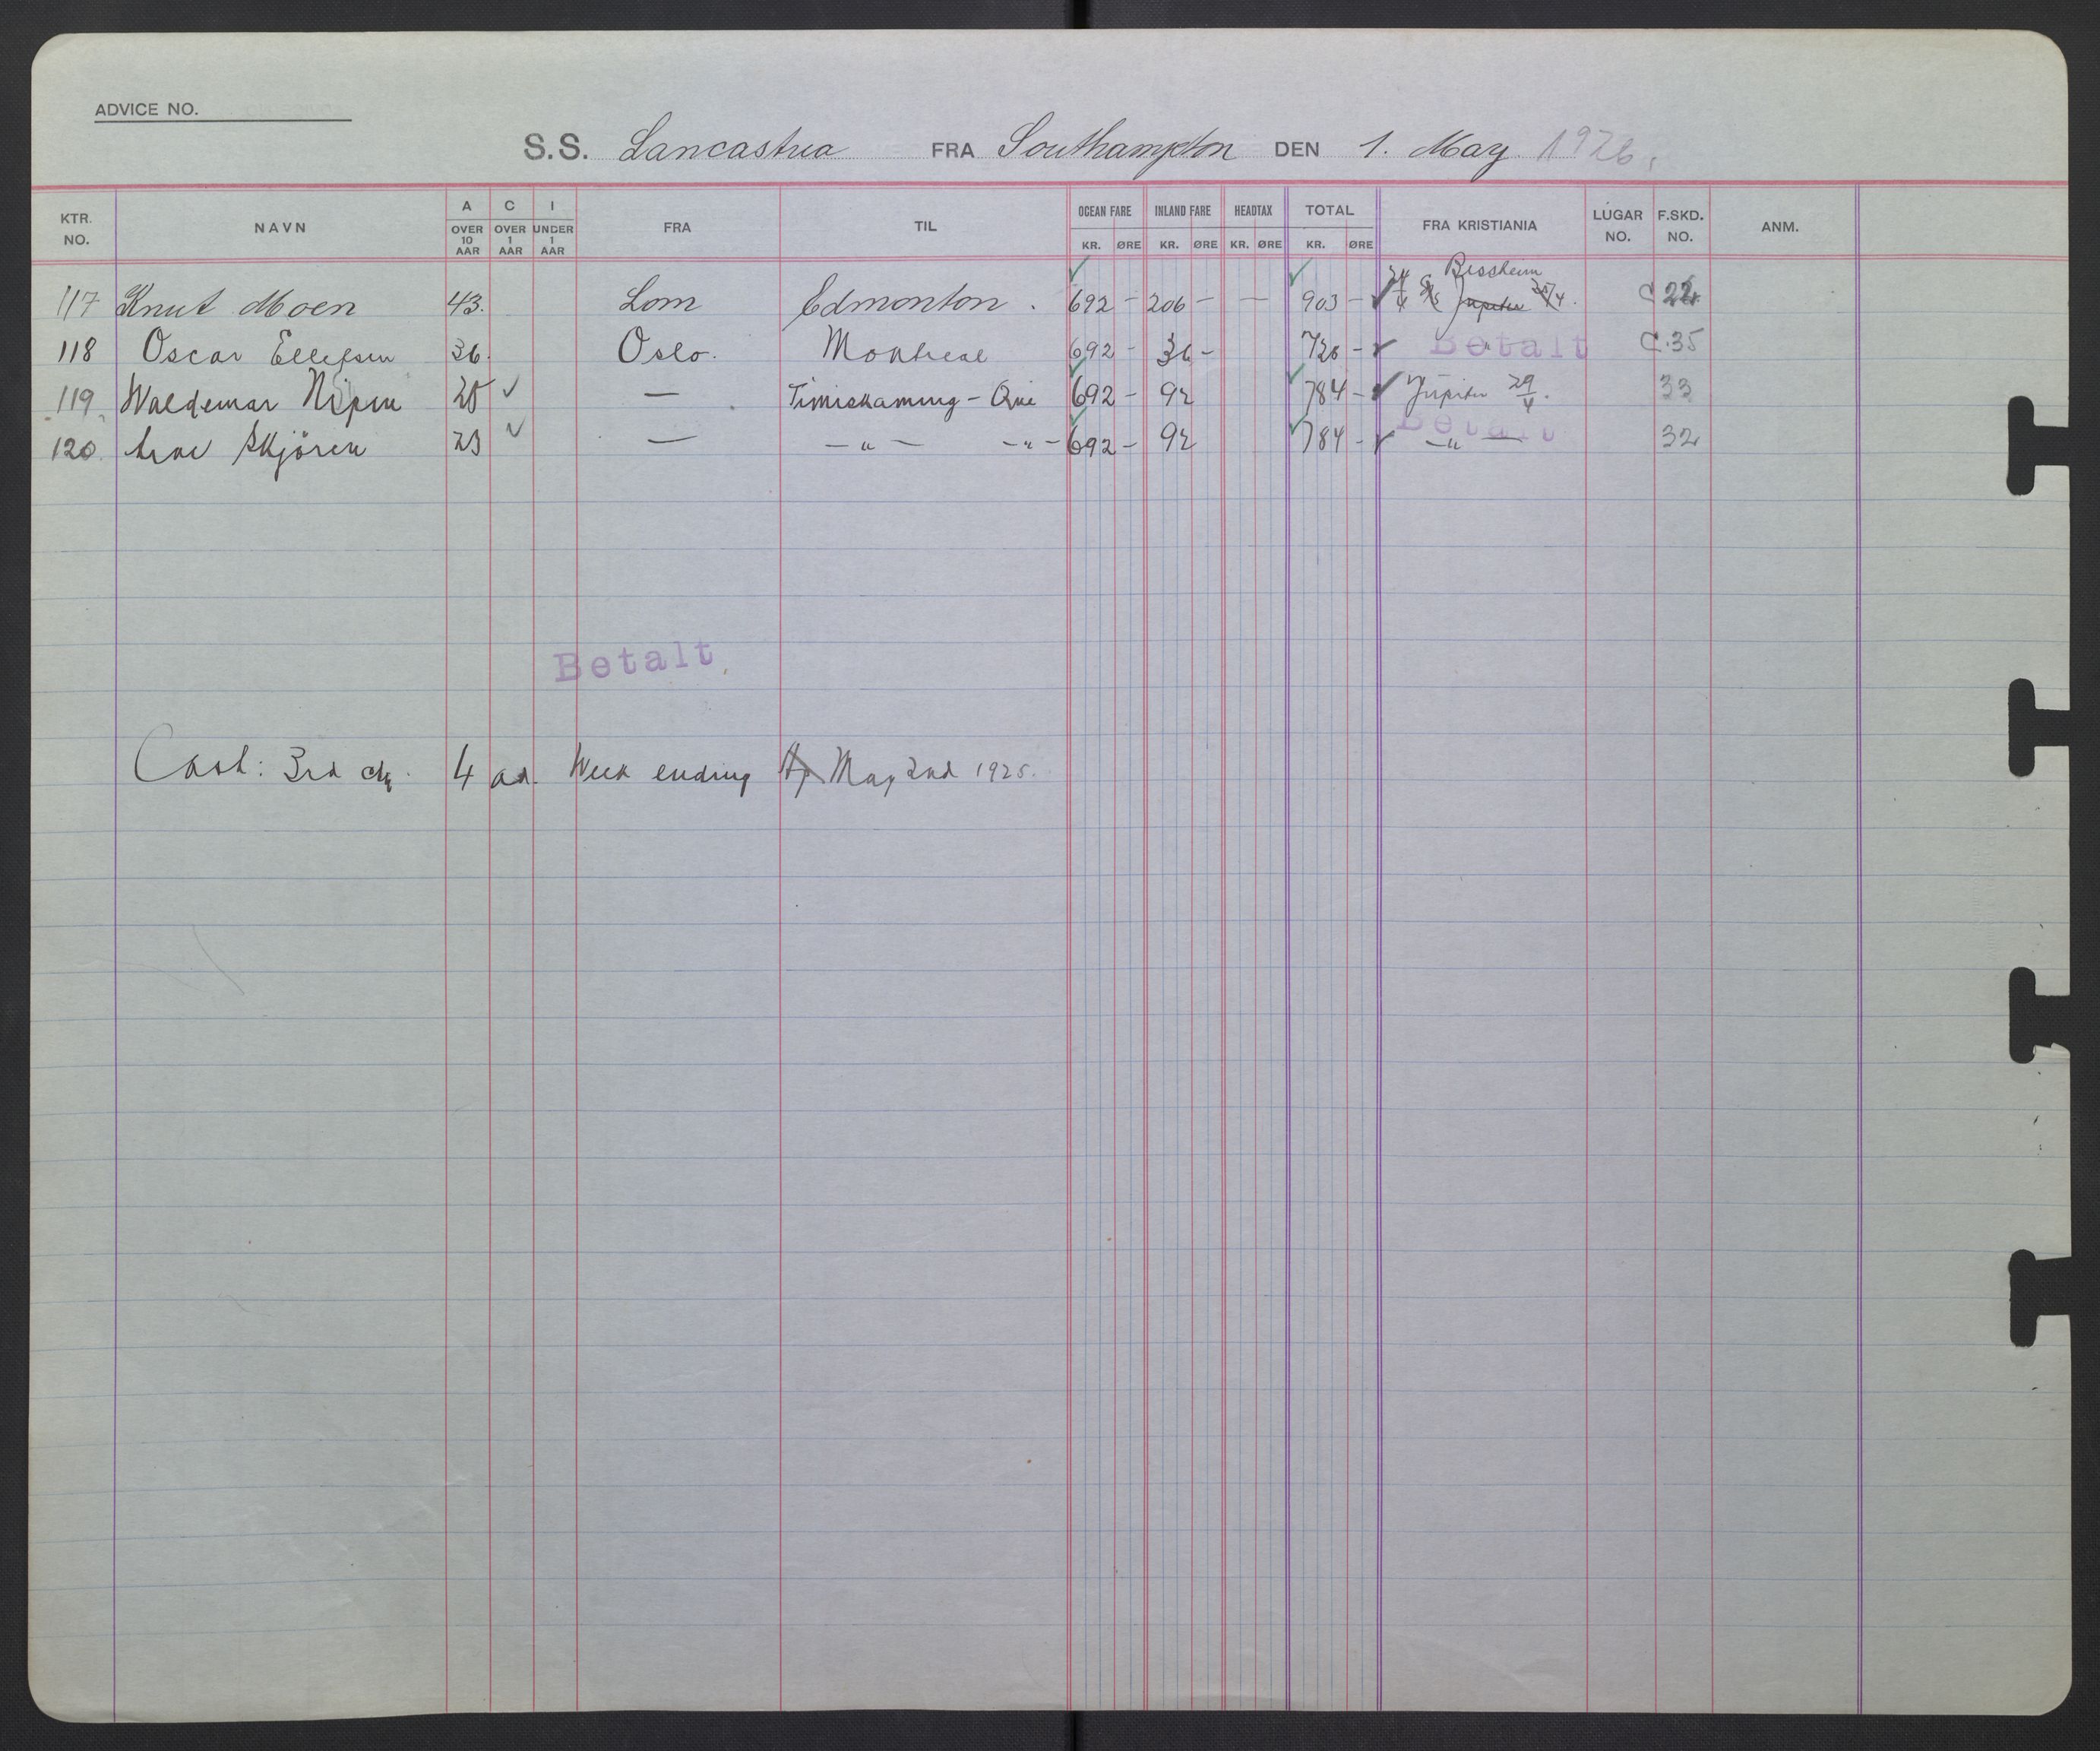 ADVICE NO.
S.S. Lancastria FRA Southampton DEN 1. May. 1926.
KTR. NO. NAVN A OVER 10 AAR C OVER 1 AAR I UNDER 1 AAR FRA TIL OCEAN FARE KR. ØRE INLAND FARE KR. ØRE HEADTAX KR. ØRE TOTAL KR. ØRE FRA KRISTIANIA LUGAR NO. F.SKD. NO. ANM.
Bessheim
117 Knut Moen 43. Lom Edmonton. 692 - 206 - - 903 - Jupiter C 22
118 Oscar Ellefsen 36. Oslo. Montreal 692 - 36 - 728 - Betalt C.35
119 Waldemar Nipen 25 — Timiskaming - Que 692 - 92 784 - Jupiter 29/4. 33
120 Arne Skjören 23 — -"- -"- 692 - 92 784 - Betalt -"- 32
Betalt
Cash: 3rd cl. 4 ad. Week ending Ap May 2nd 1925.